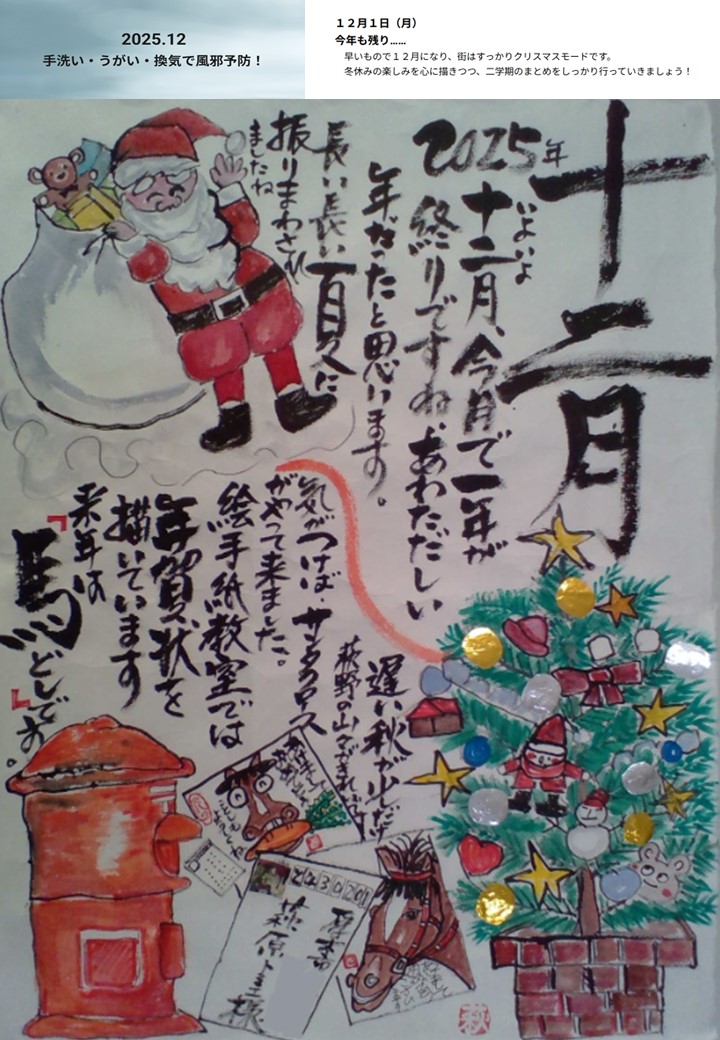 2025.12
手洗い・うがい・換気で風邪予防！
１２月１日（月）
今年も残り……
早いもので１２月になり、街はすっかりクリスマスモードです。
冬休みの楽しみを心に描きつつ、二学期のまとめをしっかり行っていきましょう！
十二月
2025年
いよいよ
十二月、今月で一年が
終りですね。あわただしい
年だったと思います。
長い長い夏に
振りまわされ
ましたね
遅い秋が少しだけ
萩野の山々で
気がつけば、サンタクロース
がやって来ました。
絵手紙教室では
年賀状を
描いています
来年は
『馬どしです。』
様